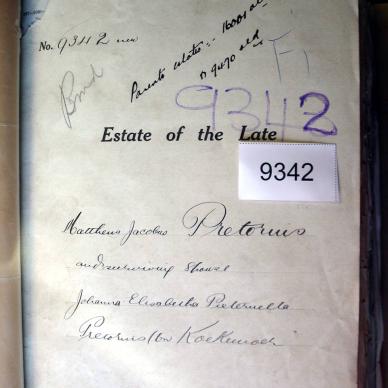 No. 9342 new
Parents estates:- 16001 old
" 9470 old
Bmd
9342
Estate of the Late
9342
Mattheus Jacobus Pretorius
and surviving spouse
Johanna Elisabetha Pieternella
Pretorius (bn Koekemoer)